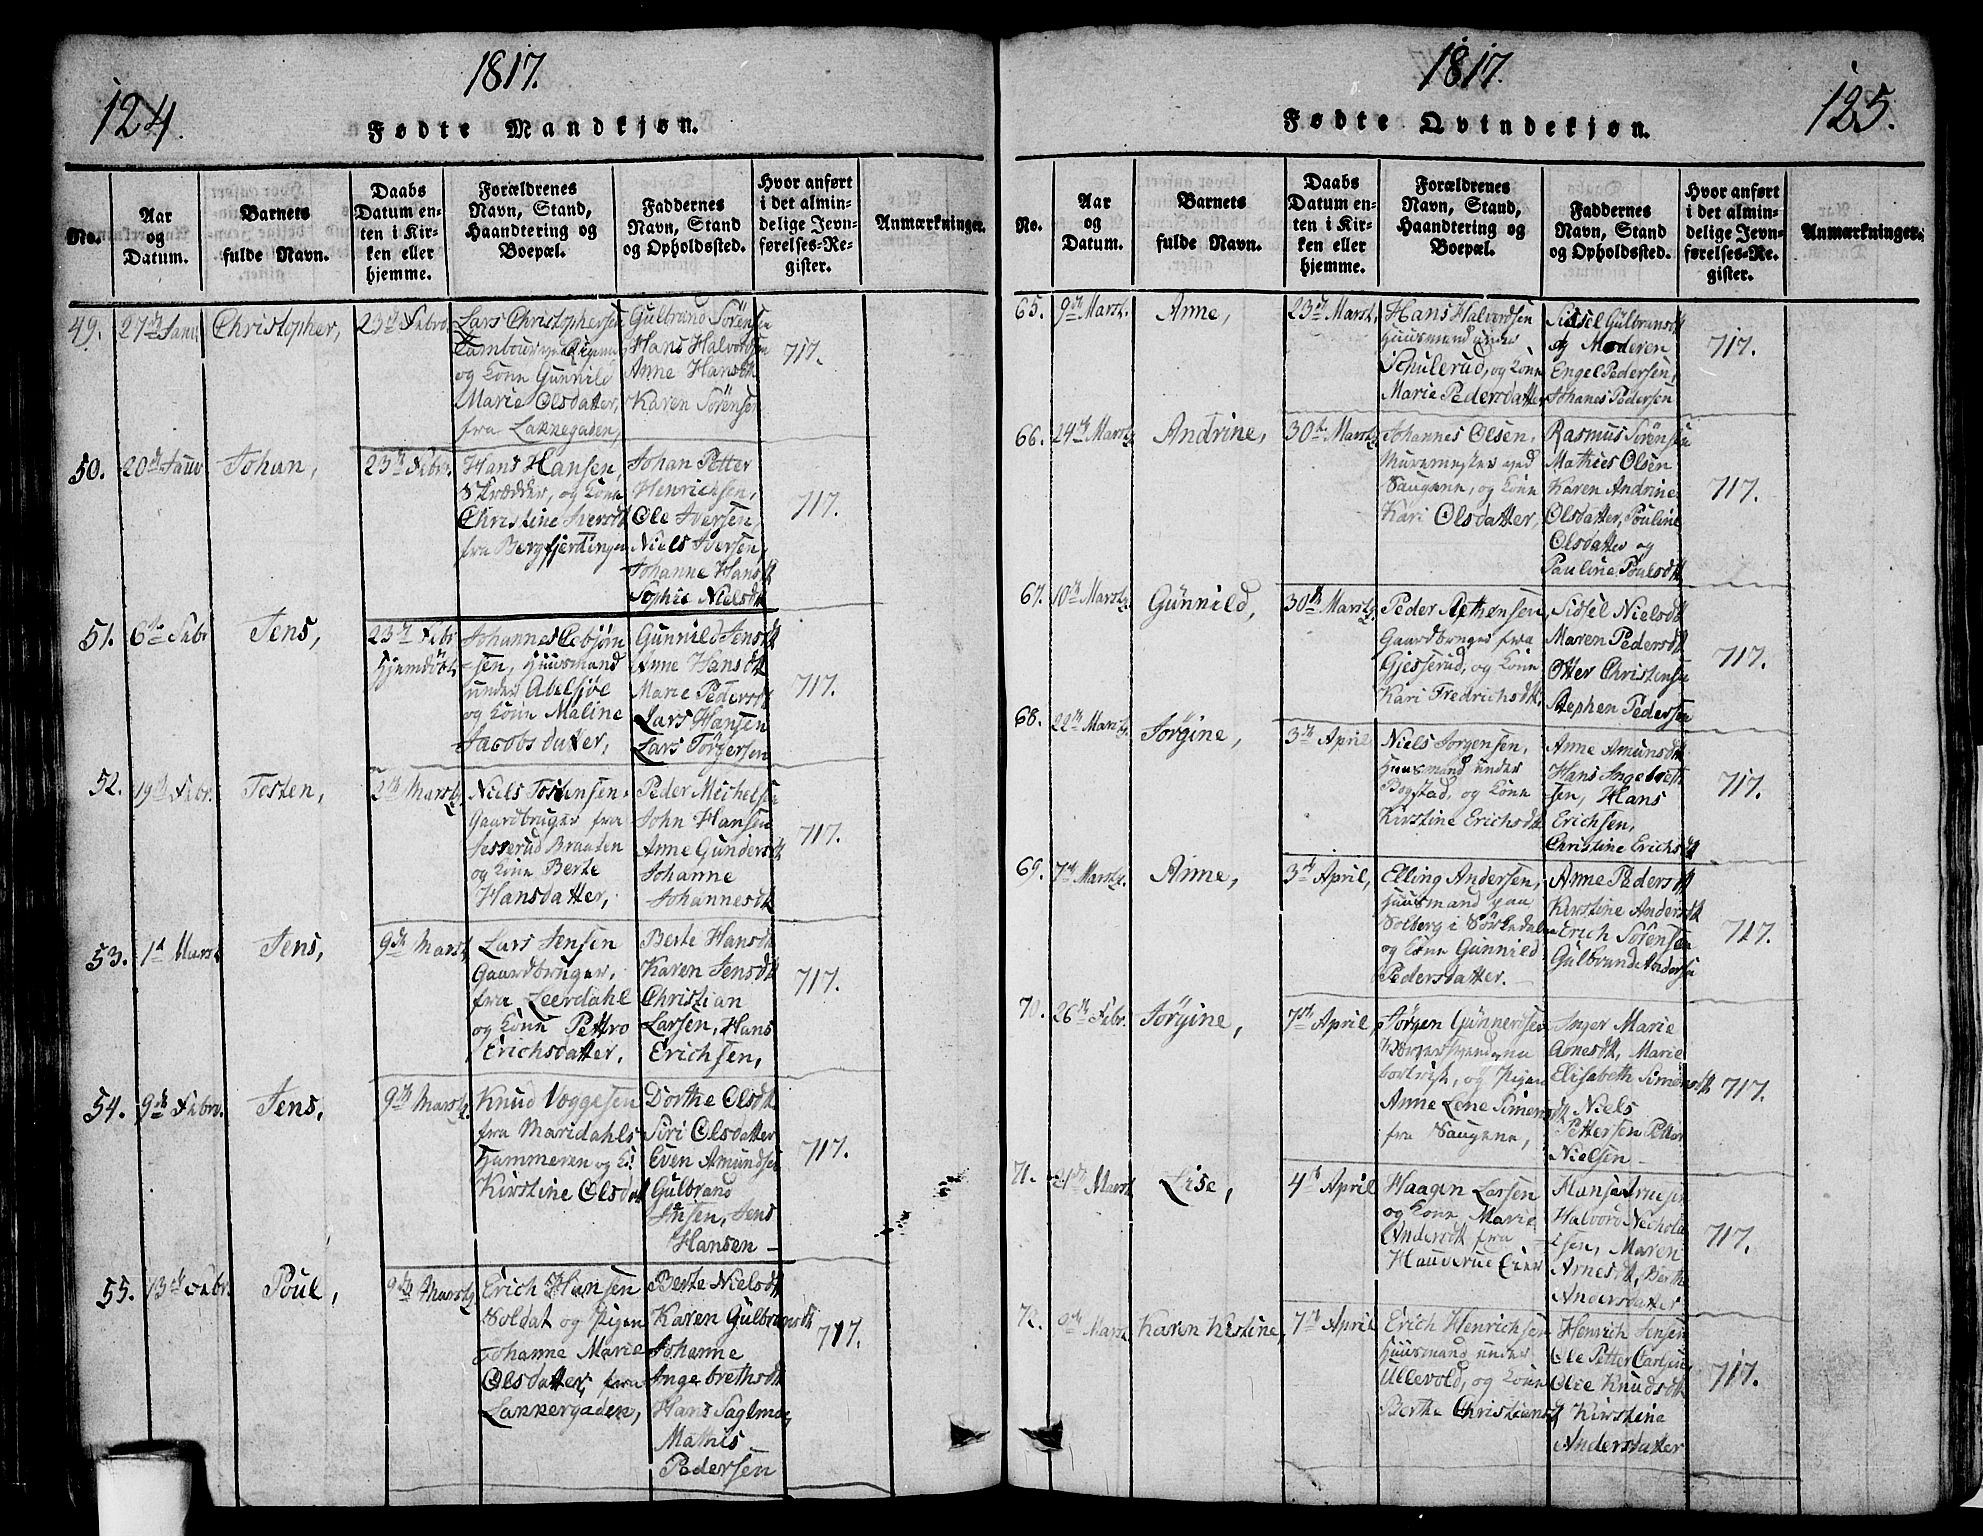 124.
1817.
Fødte Mandkjøn.
No.
Aar
og
Datum.
Barnets
fulde Navn.
Daabs
Datum en-
ten i Kir-
ken eller
hjemme.
Forældrenes
Navn, Stand,
Haandtering og
Boepæl.
Faddernes
Navn, Stand
og Opholdssted.
Hvor anført
i det almin-
delige Jevn-
førelses-Re-
gister.
Anmærkninger.
49.
27de Janu
Christopher,
23de Febro
Lars Christophersen
Tambour
og Kone Gunnild
Marie Olsdatter,
fra Lakkegaden,
Gulbrand Sörensen
Hans Halvorsen
Anne Hansdt
Karen Sörensen
717.
50.
20de Janv
Johan,
23de Febr.
Hans Hansen,
Skrædder, og Kone
Christine Iversdt
fra Bergfjerdingen
Johan Petter
Henrichsen,
Ole Iversen,
Niels Iversen,
Johanne Hansdt
Sophie Nielsdt
717.
51.
6te Febr
Jens,
23de Febr
Hjemdöbt
Johannes Esbjön
-sen, Huusmand
under Abelsjöe
og Kone Maline
Jacobsdatter,
Gunnild Jensdt
Anne Hansdt
Marie Pedersdt
Lars Hansen
Lars Törgersen
717.
52.
19de Febr.
Tosten,
2de Marsz
Niels Tostensen.
Gaardbruger fra
Jesserud Braaten
og Kone Berte
Hansdatter,
Peder Michelsen
John Hansen
Anne Gundersdt
Johanne
Johannesdt
717.
53.
1st Marsz
Jens,
9de Marsz
Lars Jensen
Gaardbruger,
fra Leerdahl
og Kone Pettro
Erichsdatter,
Berte Hansdt
Karen Jensdt
Christian
Larsen, Hans
Erichsen,
717.
54.
9de Febr.
Jens,
9de Marsz
Knud Voggesen
fra Maridahls
Hammeren og K:
Kirstine Olsdatt
Dorthe Olsdt
Siri Olsdatter
Even Amundsen
Gulbrand
Jensen, Jens
Hansen -
717.
55.
13de Febr.
Poul,
9de Marsz
Erich Hansen
Soldat og Pigen
Johanne Marie
Olsdatter, fra
Lakkergaden,
Berte Nielsdt
Karen Gulbransdt
Johanne
Angebrethsdt
Hans
Mathis
Pedersen
717.
1817.
125.
Fødte Qvindekjøn.
No.
Aar
og
Datum.
Barnets
fulde Navn.
Daabs
Datum en-
ten i Kir-
ken eller
hjemme.
Forældrenes
Navn, Stand,
Haandtering og
Boepæl.
Faddernes
Navn, Stand
og Opholdssted.
Hvor anført
i det almin-
delige Jevn-
førelses-Re-
gister.
Anmærkninger.
65.
9de Marsz.
Anne,
23de Marsz,
Hans Halvordsen
Huusmand under
Schulerud, og Kone
Marie Pedersdatter
Sidsel Gulbransdt
og Moderen
Engel Pedersen,
Johanes Pedersen
717.
66.
24de Marsz
Andrine,
30te Marsz
Johannes Olsen,
Muremester ved
Saugene, og Kone
Kari Olsdatter,
Rasmus Sörensen
Mathies Olsen
Karen Andrine
Olsdatter, Pouline
Olsdatter og
Pauline Poulsdt
717.
67.
10de Marsz.
Günnild,
30te Marsz
Peder
Gaardbruger fra
Gjesserud, og Kone
Kari Fredrichsdt,
Sidsel Nielsdt
Maren Pedersdt
Otter Christensen
Stephen Pedersen
717.
68.
22de Marsz.
Jörgine,
3de April,
Niels Jorgensen,
Huusmand under
Bogstad, og Kone
Kirstine Erichsdt
Anne Amunsdt
Hans Ingebreth
sen, Hans
Erichsen,
Christine Erichsdt
717.
69.
7de Marsz.
Anne,
3de April,
Elling Andersen,
Huusmand paa
Solberg i Sörkedalen
og Kone Gunnild
Pedersdatter.
Anne Pedersdt
Kirstine Andersdt
Erich Sörensen
Gulbrand Andersen
717.
70.
26de Febr.
Jörgine,
7de April,
Jörgen Günnersen
bortreist, og Pigen
Anne Lene Simensdt
fra Saugene,
Inger Marie
Arnesdt, Marie
Elisabeth Simensdt
Niels
Pettersen Petter
Nielsen -
717.
71.
21de Marsz
Lise,
4de April
Haagen Larsen
og Kone Marie
Andersdt fra
Hans
Halvord Nichola
isen, Maren
Arnesdt, Berthe
Andersdatter
717.
72.
Marsz
Karen Kistine,
7de April
Erich Henrichsen
Huusmand under
Ullevold, og Kone
Berthe Christiansdt
Henrich Jensen
Ole Petter Carlsen
Olie Knudsdt
Kirstine
Andersdatter
717.